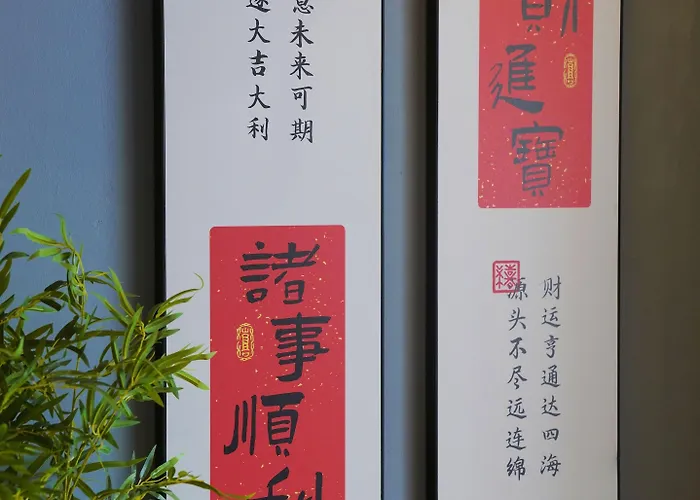 未来可期
大吉大利
諸事順利
進寶
财运亨通达四海
源头不尽远连绵